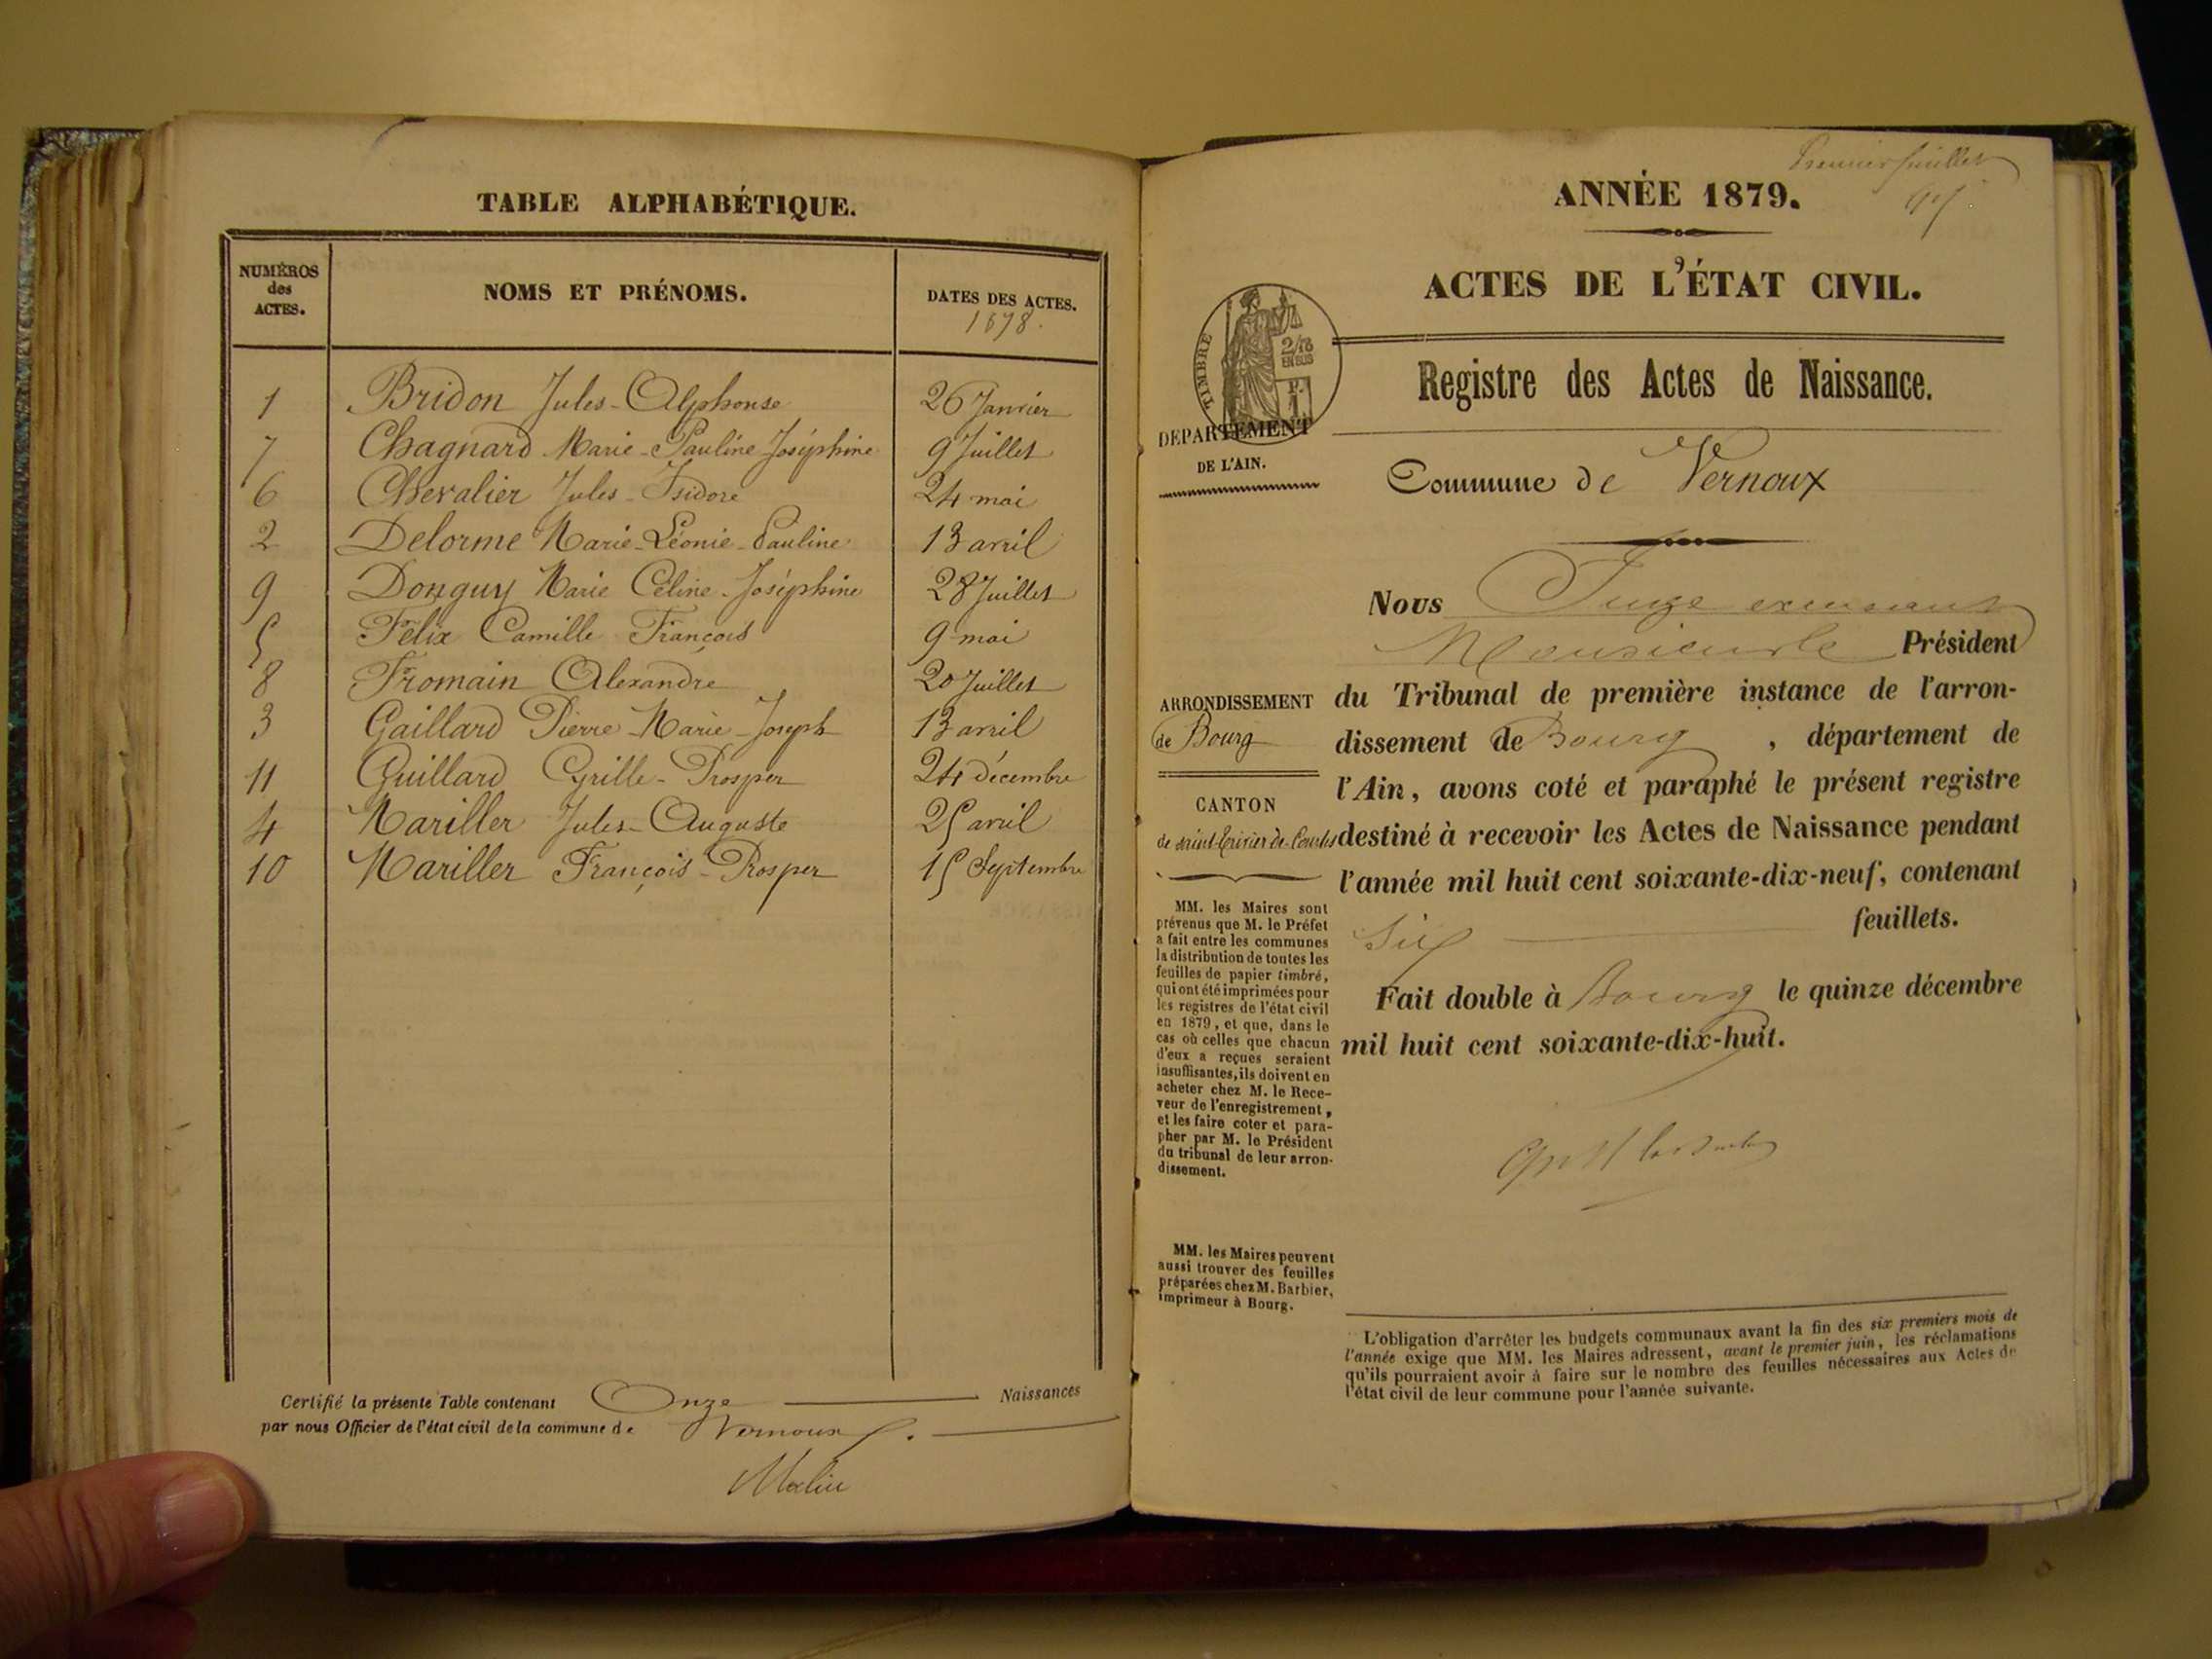 TABLE ALPHABÉTIQUE.
NUMÉROS des ACTES.
NOMS ET PRÉNOMS.
DATES DES ACTES.
1878.
1 Bridon Jules-Alphonse 26 Janvier
7 Chagnard Marie-Pauline-Joséphine 9 Juillet
6 Chevalier Jules-Isidore 24 mai
2 Delorme Marie-Léonie-Pauline 13 avril
9 Donguy Marie Céline-Joséphine 28 Juillet
5 Félix Camille François 9 mai
8 Fromain Alexandre 20 Juillet
3 Gaillard Pierre-Marie-Joseph 13 avril
11 Guillard Cyrille-Prosper 24 décembre
4 Mariller Jules-Auguste 25 avril
10 Mariller François-Prosper 15 Septembre
Certifié la présente Table contenant Onze Naissances
par nous Officier de l'état civil de la commune de Vernoux.
Premier feuillet
ANNÉE 1879.
ACTES DE L'ÉTAT CIVIL.
TIMBRE
2/10
EN SUS
Registre des Actes de Naissance.
DÉPARTEMENT
DE L'AIN.
Commune de Vernoux
Nous Juge
Monsieur le Président
ARRONDISSEMENT
de Bourg
du Tribunal de première instance de l'arron-
dissement de Bourg, département de
l'Ain, avons coté et paraphé le présent registre
CANTON
de saint-Trivier-de-Courtes
destiné à recevoir les Actes de Naissance pendant
l'année mil huit cent soixante-dix-neuf, contenant
Six feuillets.
Fait double à Bourg le quinze décembre
mil huit cent soixante-dix-huit.
MM. les Maires sont
prévenus que M. le Préfet
a fait entre les communes
la distribution de toutes les
feuilles de papier timbré,
qui ont été imprimées pour
les registres de l'état civil
en 1879, et que, dans le
cas où celles que chacun
d'eux a reçues seraient
insuffisantes, ils doivent en
acheter chez M. le Rece-
veur de l'enregistrement,
et les faire coter et para-
pher par M. le Président
du tribunal de leur arron-
dissement.
MM. les Maires peuvent
aussi trouver des feuilles
préparées chez M. Barbier,
imprimeur à Bourg.
L'obligation d'arrêter les budgets communaux avant la fin des six premiers mois de
l'année exige que MM. les Maires adressent, avant le premier juin, les réclamations
qu'ils pourraient avoir à faire sur le nombre des feuilles nécessaires aux Actes de
l'état civil de leur commune pour l'année suivante.